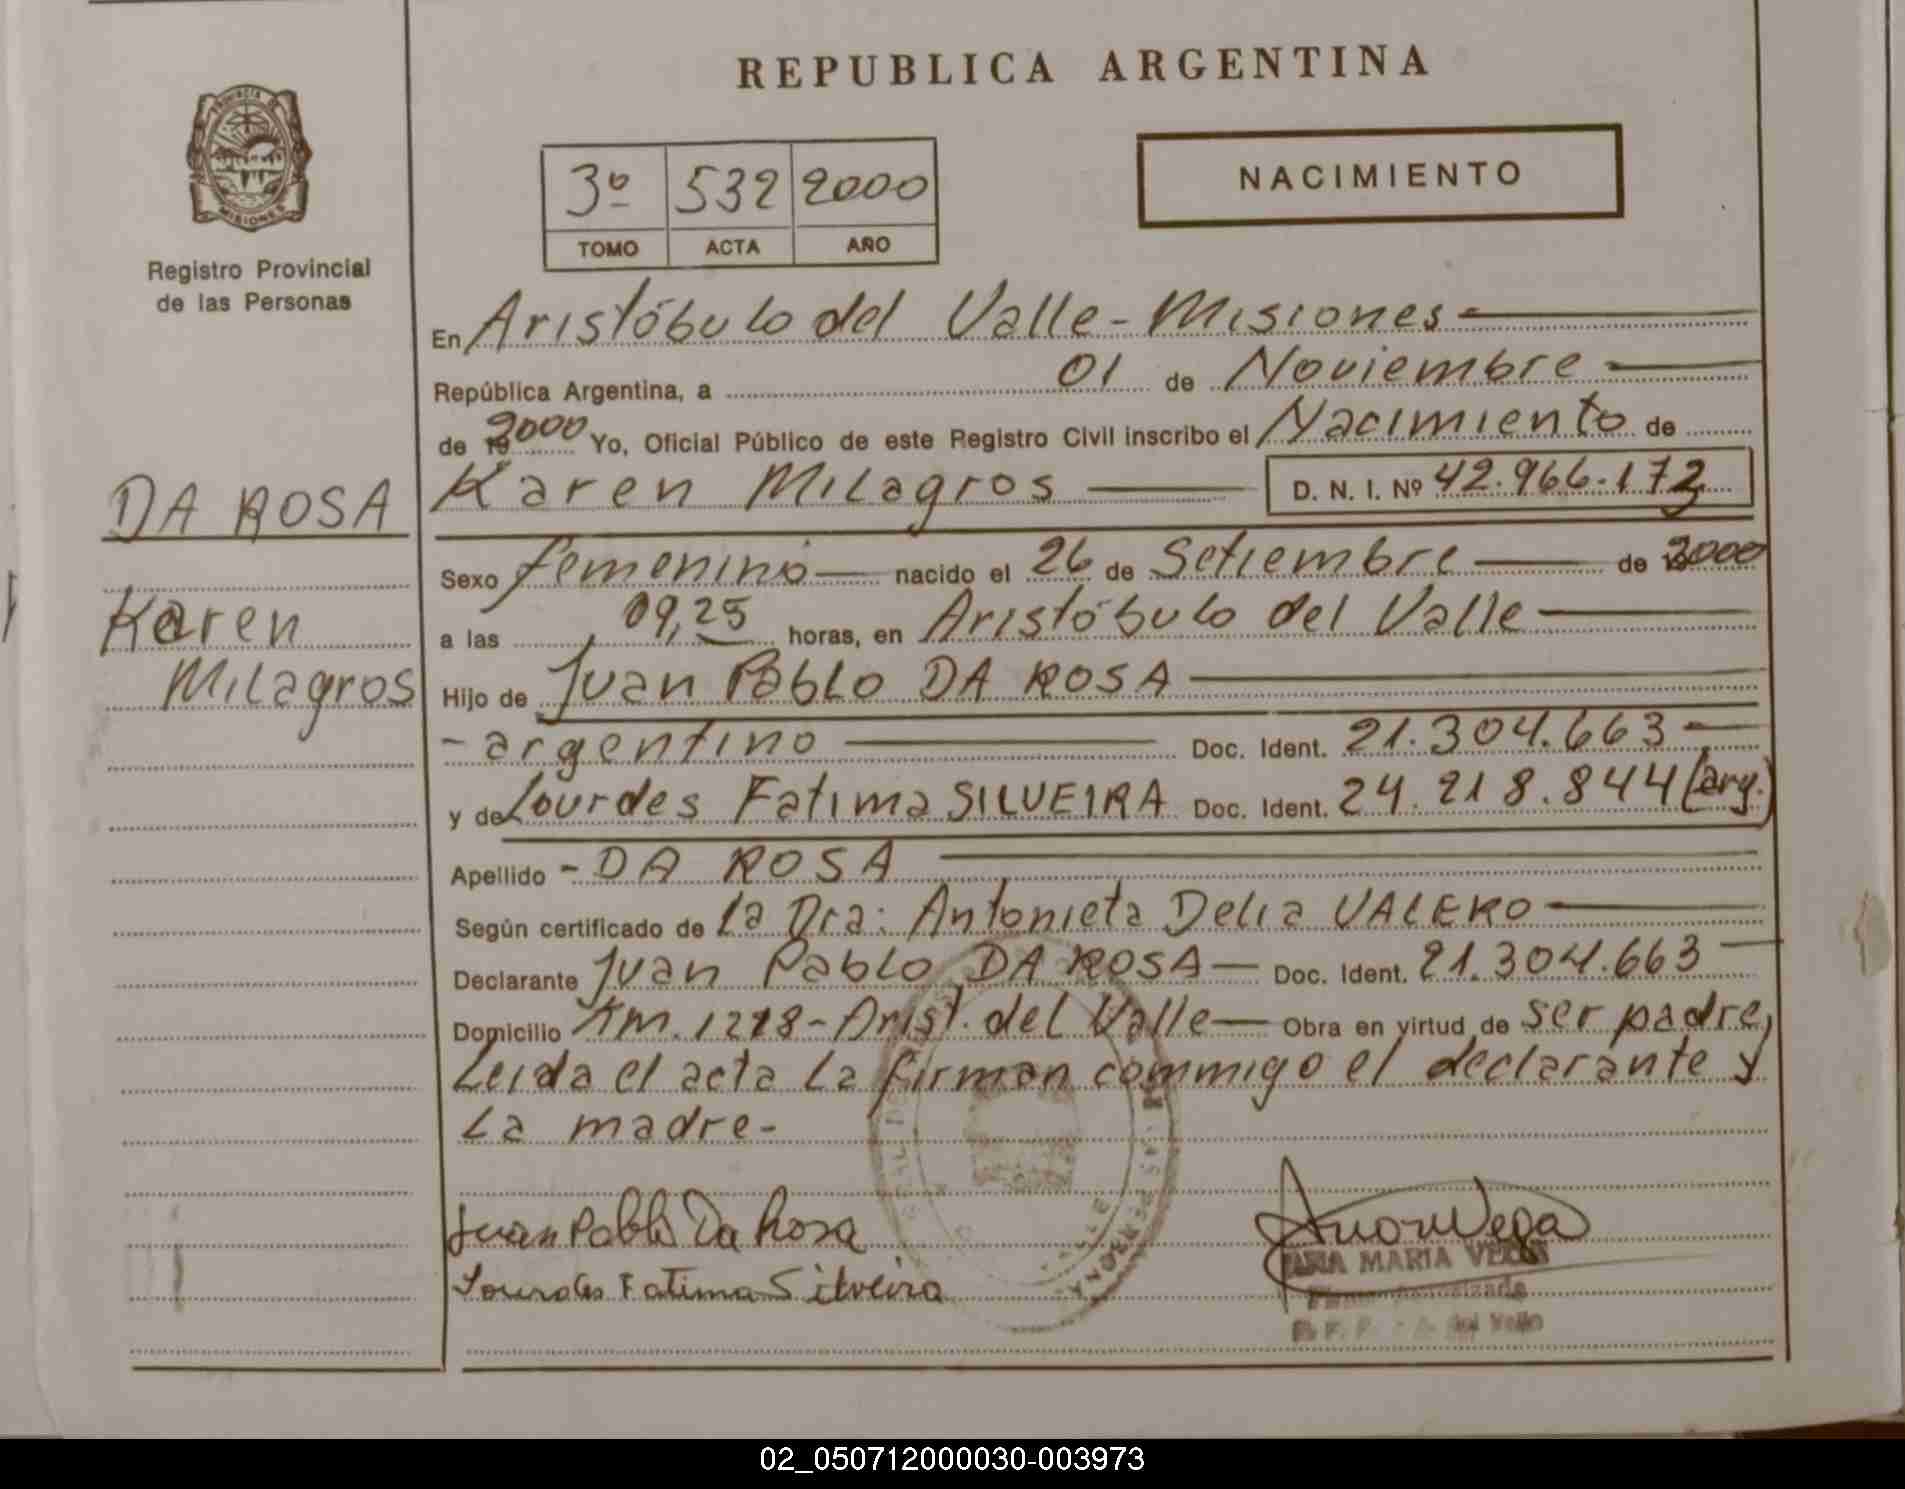 REPUBLICA ARGENTINA
PROVINCIA DE
MISIONES
Registro Provincial
de las Personas
3º 532 2000
TOMO ACTA AÑO
NACIMIENTO
En Aristóbulo del Valle - Misiones
República Argentina, a 01 de Noviembre
de 2000 Yo, Oficial Público de este Registro Civil inscribo el Nacimiento de
DA ROSA
Karen Milagros D. N. I. Nº 42.966.172
Sexo femenino nacido el 26 de Setiembre de 2000
Karen
a las 09,25 horas, en Aristóbulo del Valle
Milagros
Hijo de Juan Pablo DA ROSA
- argentino Doc. Ident. 21.304.663
y de Lourdes Fatima SILVEIRA Doc. Ident. 24.218.844 (arg.)
Apellido - DA ROSA
Según certificado de la Dra: Antonieta Delia VALERO
Declarante Juan Pablo DA ROSA Doc. Ident. 21.304.663
Domicilio Km. 1218 - Arist. del Valle Obra en virtud de ser padre,
Leida el acta la firman commigo el declarante y
la madre -
Juan Pablo Da Rosa
Lourdes Fatima Silveira
Ana M Vega
ANA MARIA VEGA
del Valle
02_050712000030-003973